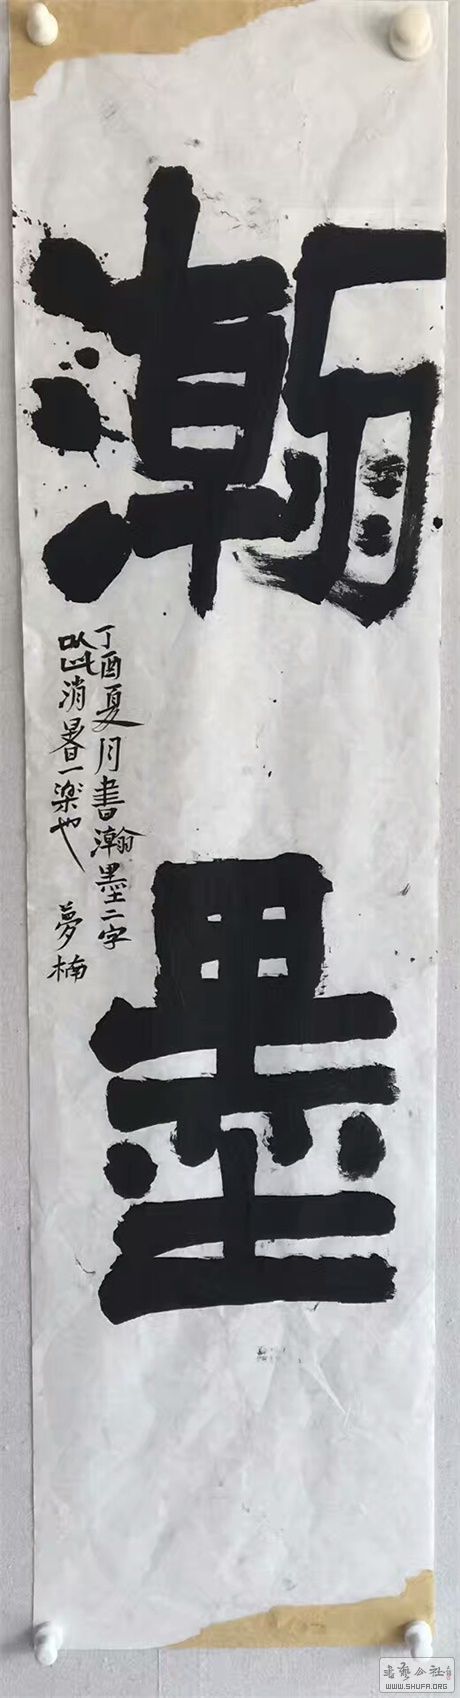 瀚
墨
丁酉夏月书瀚墨二字
以此消暑一楽也
夢楠
书艺公社
WWW.SHUFA.ORG